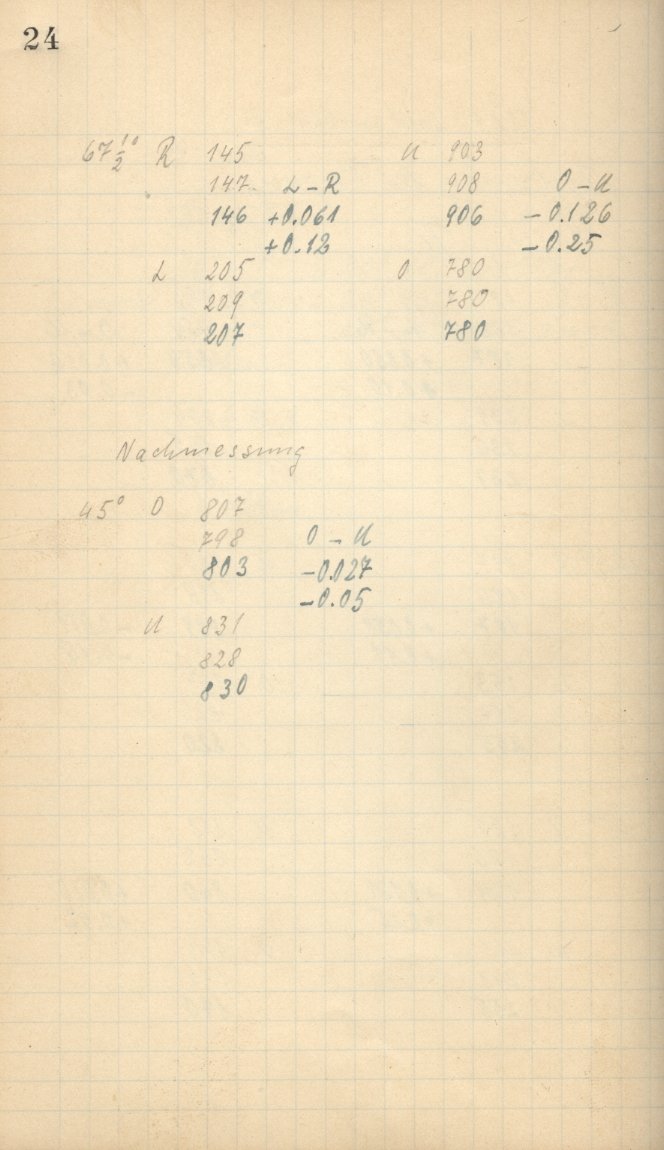 24
67 1/2° R 145 U 903
147 L – R 908 O – U
146 +0.061 906 – 0.126
+0.12 – 0.25
L 205 O 780
209 780
207 780
Nachmessung
45° O 807
798 O – U
803 –0.027
–0.05
U 831
828
830